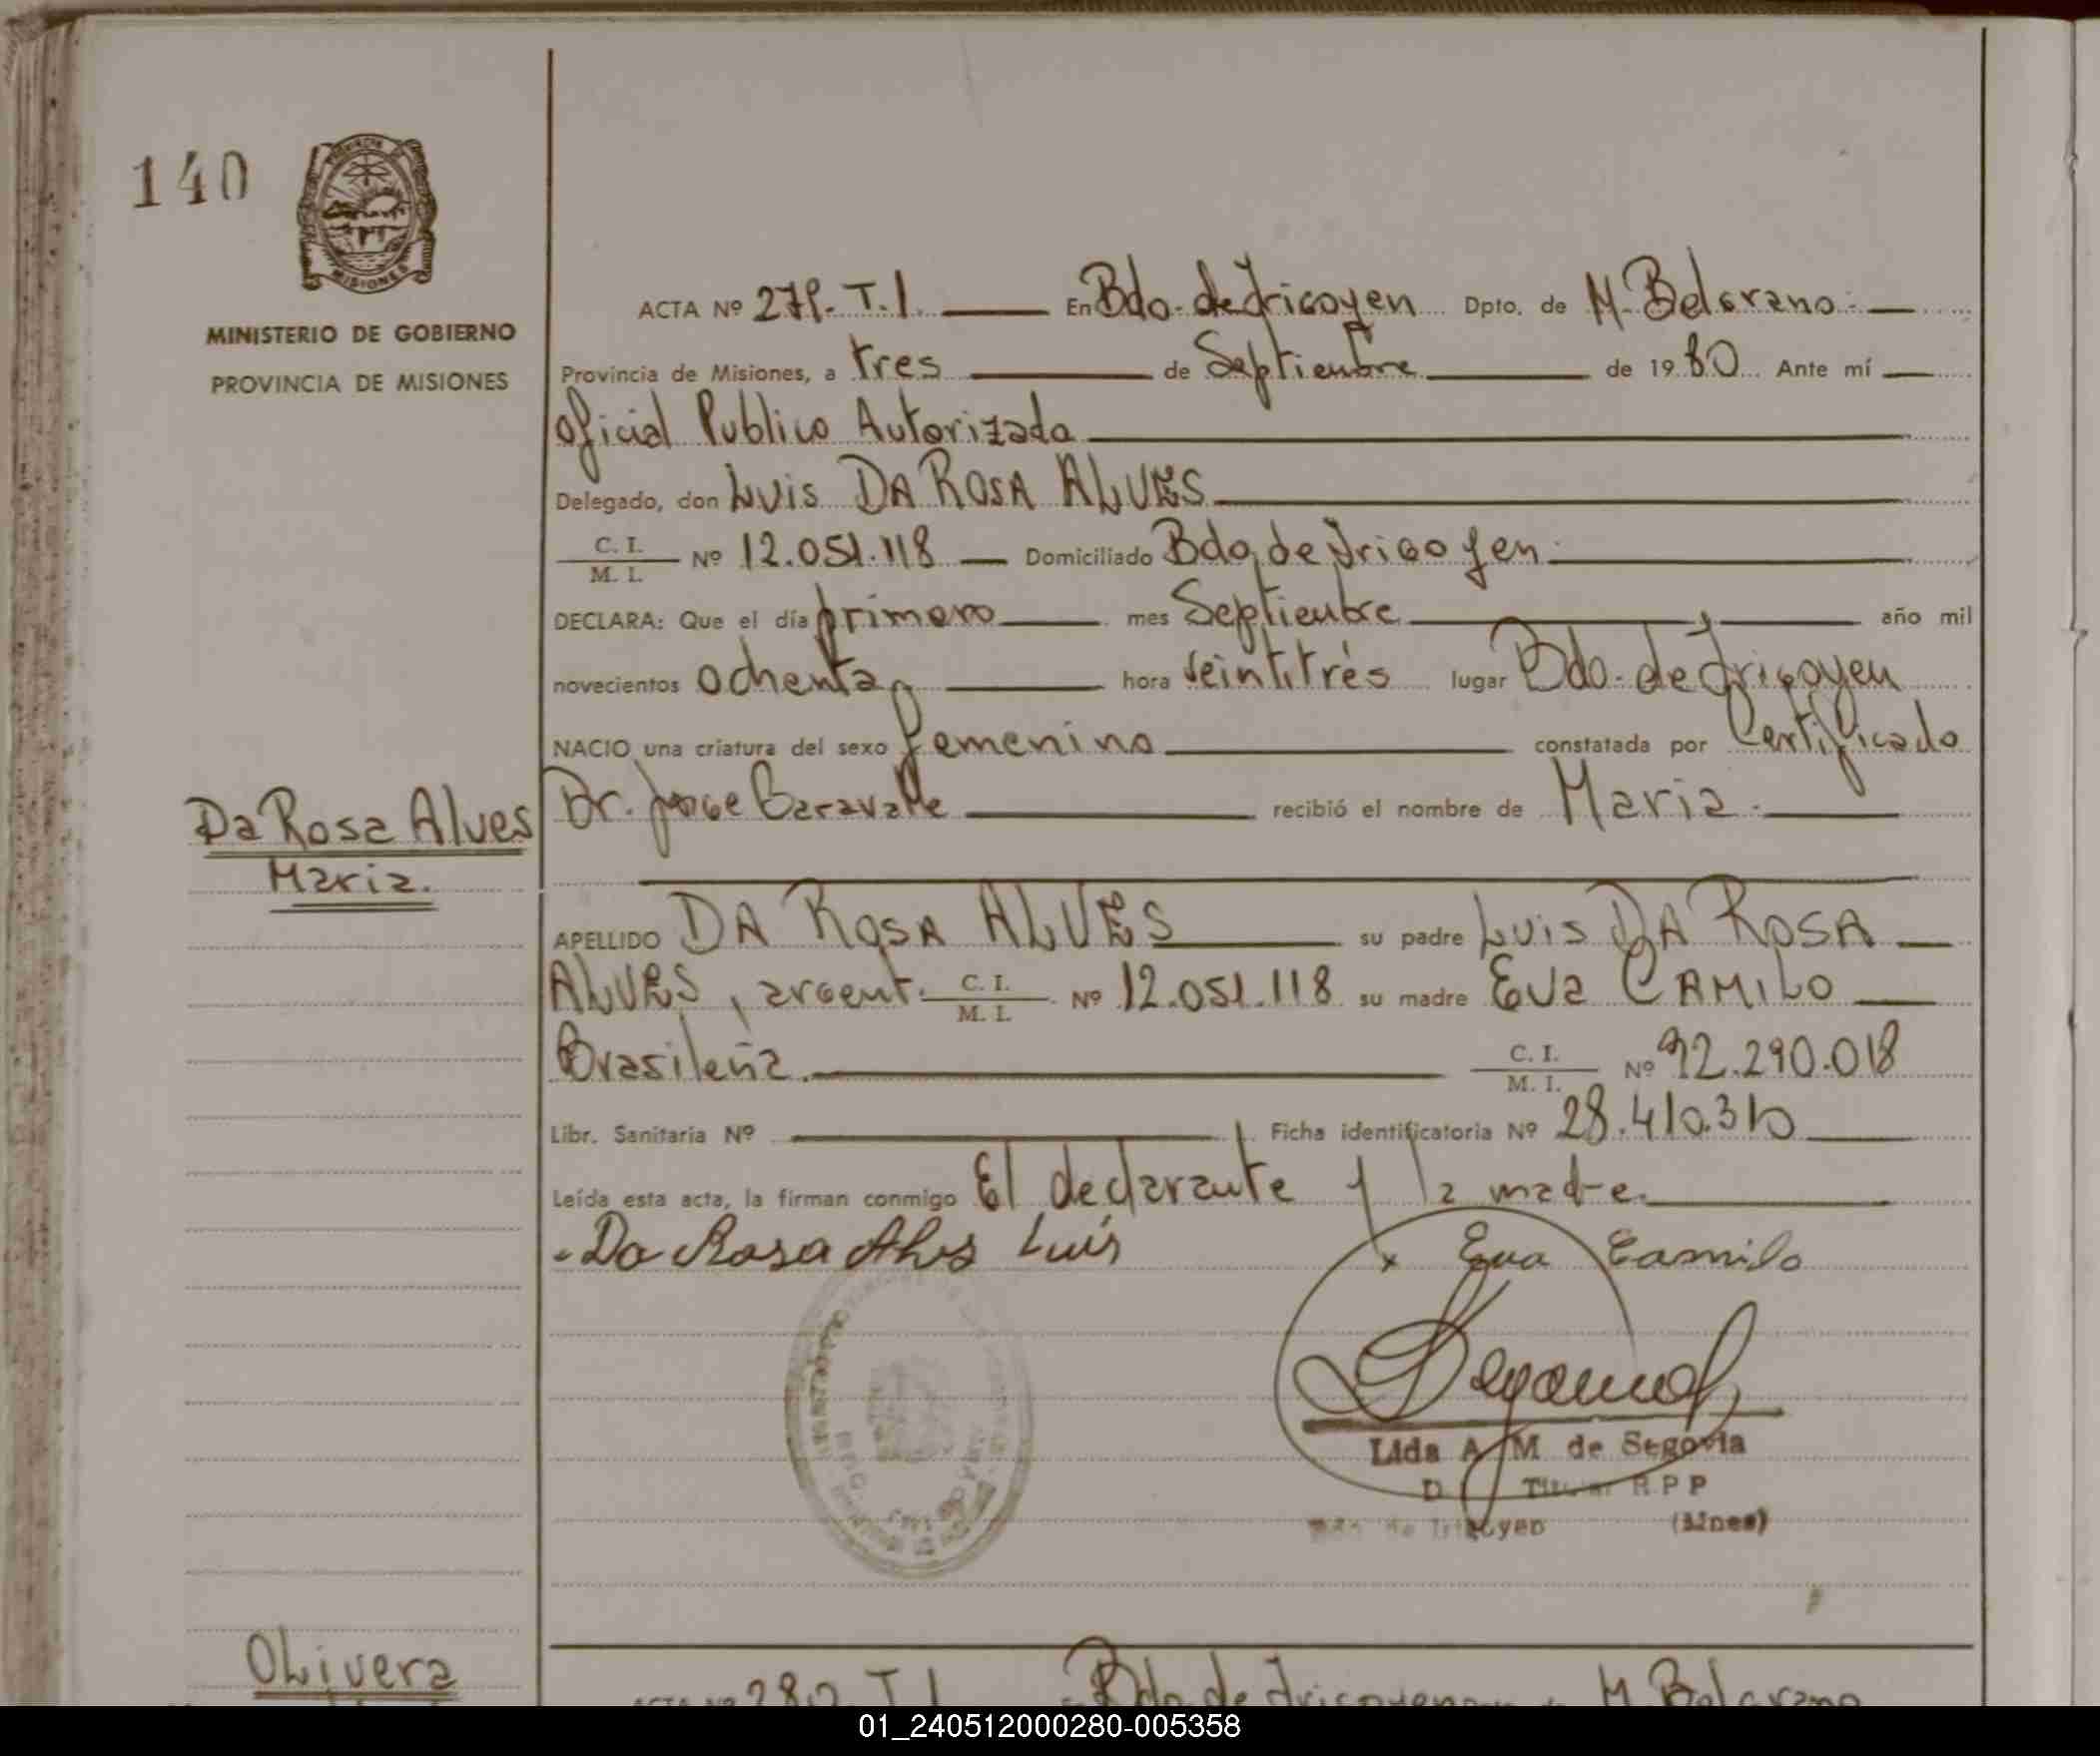 140
MISIONES
MINISTERIO DE GOBIERNO
PROVINCIA DE MISIONES
ACTA Nº 279. T.I. En Bdo. de Irigoyen Dpto. de M. Belgrano.
Provincia de Misiones, a tres de Septiembre de 1980 Ante mí
Oficial Publico Autorizada
Delegado, don Luis DA ROSA ALVES
C. I. / M. I. Nº 12.051.118 Domiciliado Bdo. de Irigoyen.
DECLARA: Que el día primero mes Septiembre año mil
novecientos ochenta hora veintitrés lugar Bdo. de Irigoyen
NACIO una criatura del sexo femenino constatada por Certificado
Dr. Jorge Baravalle recibió el nombre de Maria.
Da Rosa Alves
Maria.
APELLIDO DA ROSA ALVES su padre Luis DA ROSA
ALVES, argent. C. I. / M. I. Nº 12.051.118 su madre Eva CAMILO
Brasileña. C. I. / M. I. Nº 92.290.018
Libr. Sanitaria Nº Ficha identificatoria Nº 28.410.310
Leída esta acta, la firman conmigo El declarante y la madre.
Da Rosa Alves Luis x Eva Camilo
Lida A. M. de Segovia
Titular R P P
de Irigoyen (Mnes)
Olivera
ACTA Nº 280 T.I. Bdo. de Irigoyen M. Belgrano
01_240512000280-005358